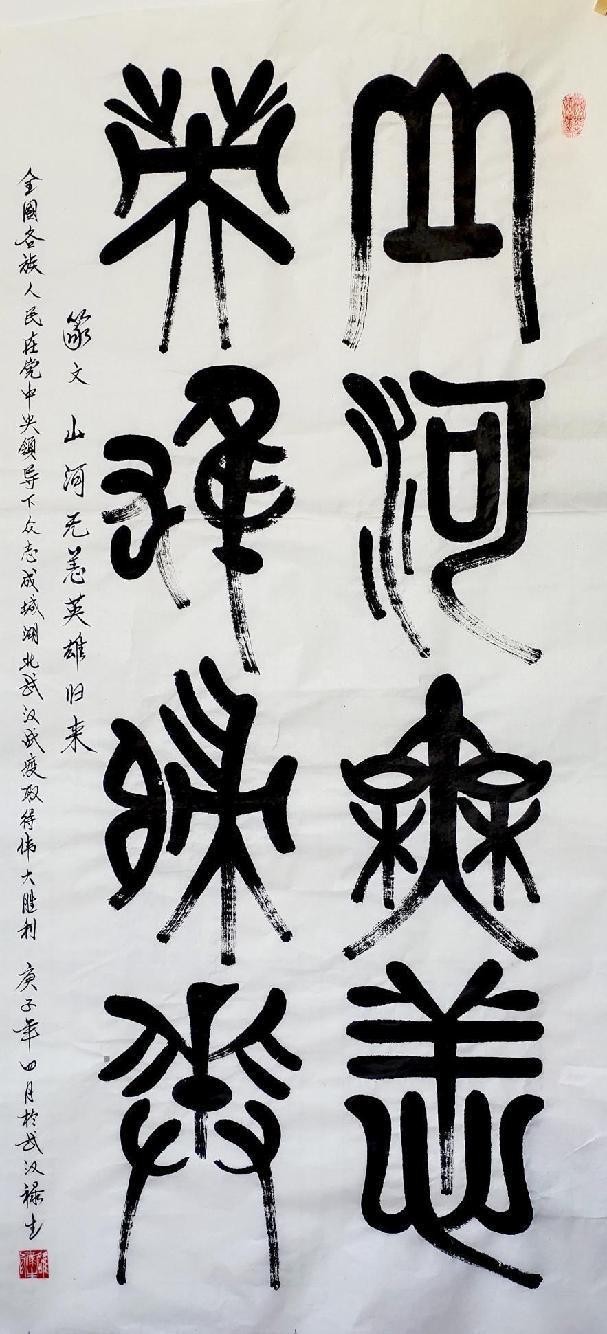 山河無恙
英雄歸來
篆文 山河无恙英雄归来
全國各族人民在党中央领导下众志成城湖北武汉战疫取得伟大胜利 庚子年四月於武汉 生